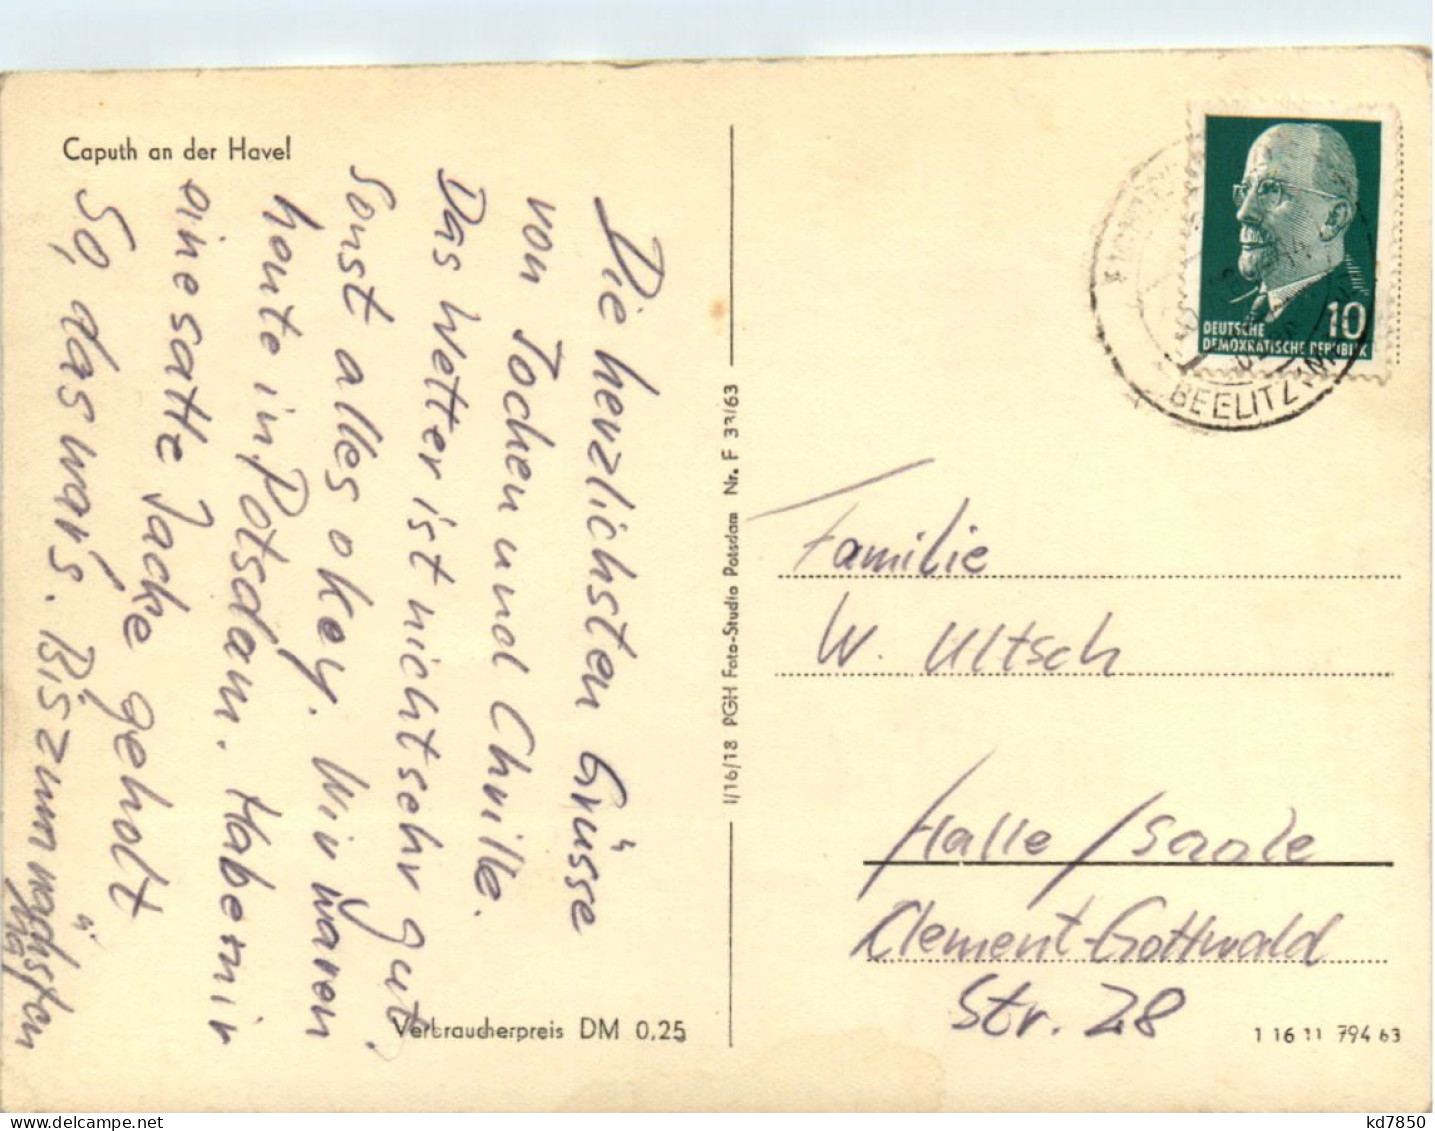 Caputh an der Havel
Die herzlichsten Grüsse
von Jochen und Chrille.
Das Wetter ist nicht sehr gut.
Sonst alles okey. Wir waren
heute in Potsdam. Habe mir
eine satte Jacke geholt
So, das wars. Bis zum nächsten
Verbraucherpreis DM 0,25
I/16/18 PGH Foto-Studio Potsdam Nr. F 33/63
10
DEUTSCHE
DEMOKRATISCHE REPUBLIK
BEELITZ
Familie
W. Ultsch
Halle/Saale
Clement-Gottwald
Str. 28
1 16 11 794 63
kd7850